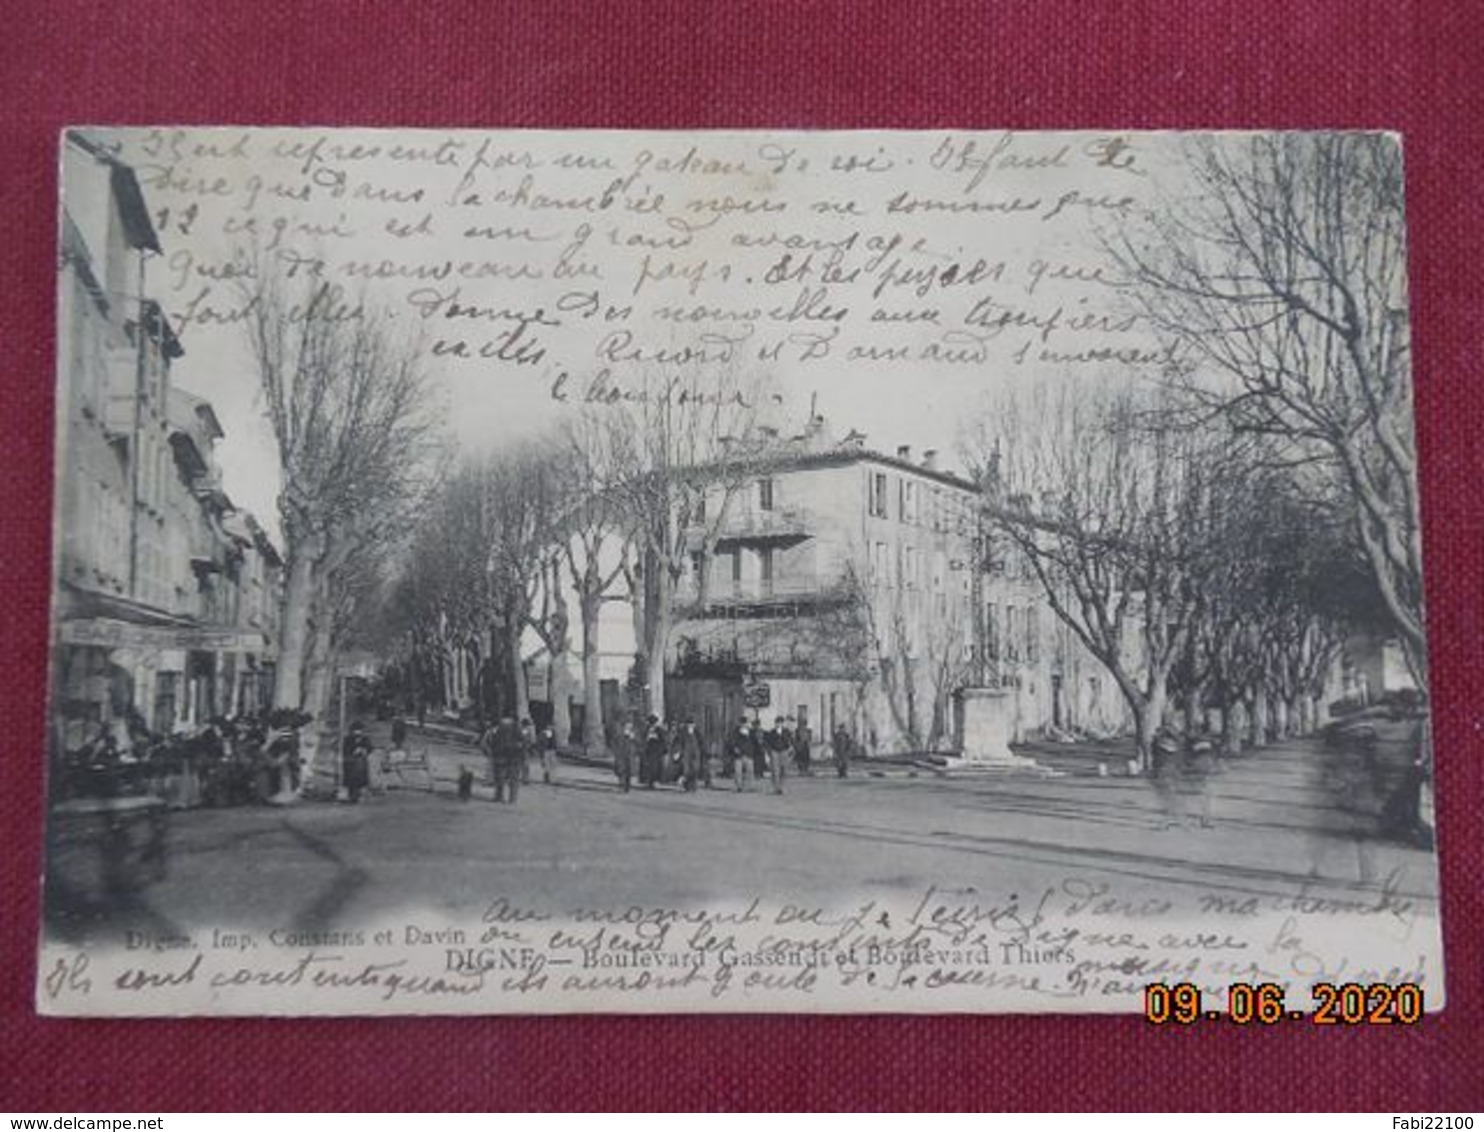 Il est représenté par un gateau de roi. Il faut te
dire que dans la chambrée nous ne sommes que
12 ce qui est un grand avantage.
Quoi de nouveau au pays. Et les que
font elles. Donne des nouvelles aux troufiers
exilés. Ricord et Dornaud t'envoient
le bonjour.
au moment ou je t'écris dans ma chambre
Digne. Imp. Constans et Davin
on entend les conscrits de Digne avec la
DIGNE — Boulevard Gassendi et Boulevard Thiers
musique
Ils sont contents quand ils auront gouté de la caserne.
09.06.2020
delcampe.net
Fabi22100